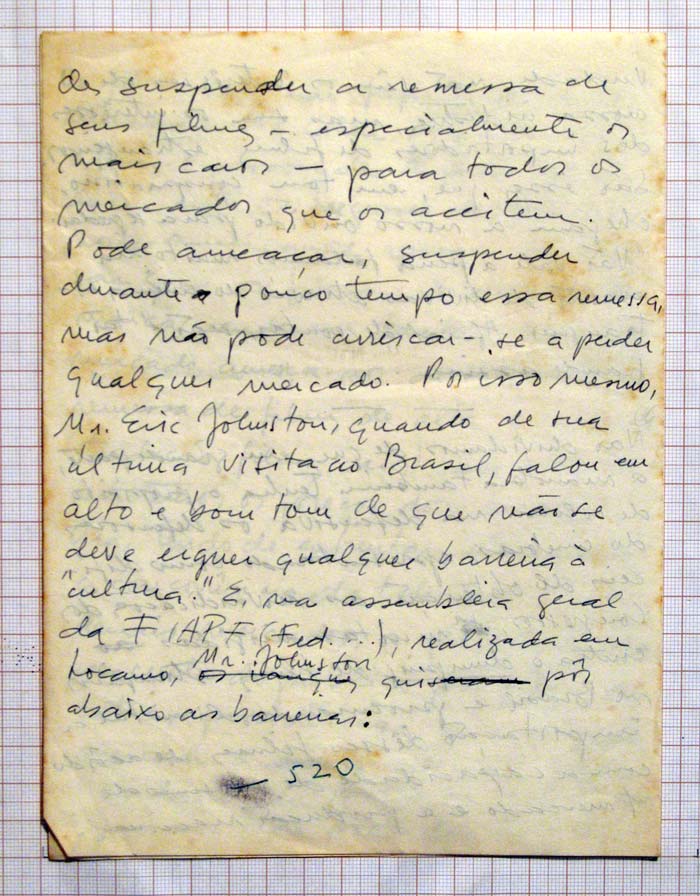 des suspender a remessa de
seus filmes – especialmente os
mais caros – para todos os
mercados que os aceitem.
Pode ameaçar, suspender
durante pouco tempo essa remessa,
mas não pode arriscar-se a perder
qualquer mercado. Por isso mesmo,
Mr. Eric Johnston, quando de sua
última visita ao Brasil, falou em
alto e bom tom de que não se
deve erguer qualquer barreira à
"cultura." E, na assembleia geral
da FIAPF (Fed. ...), realizada em
Locarno, Mr. Johnston quis pôr
abaixo as barreiras:
520